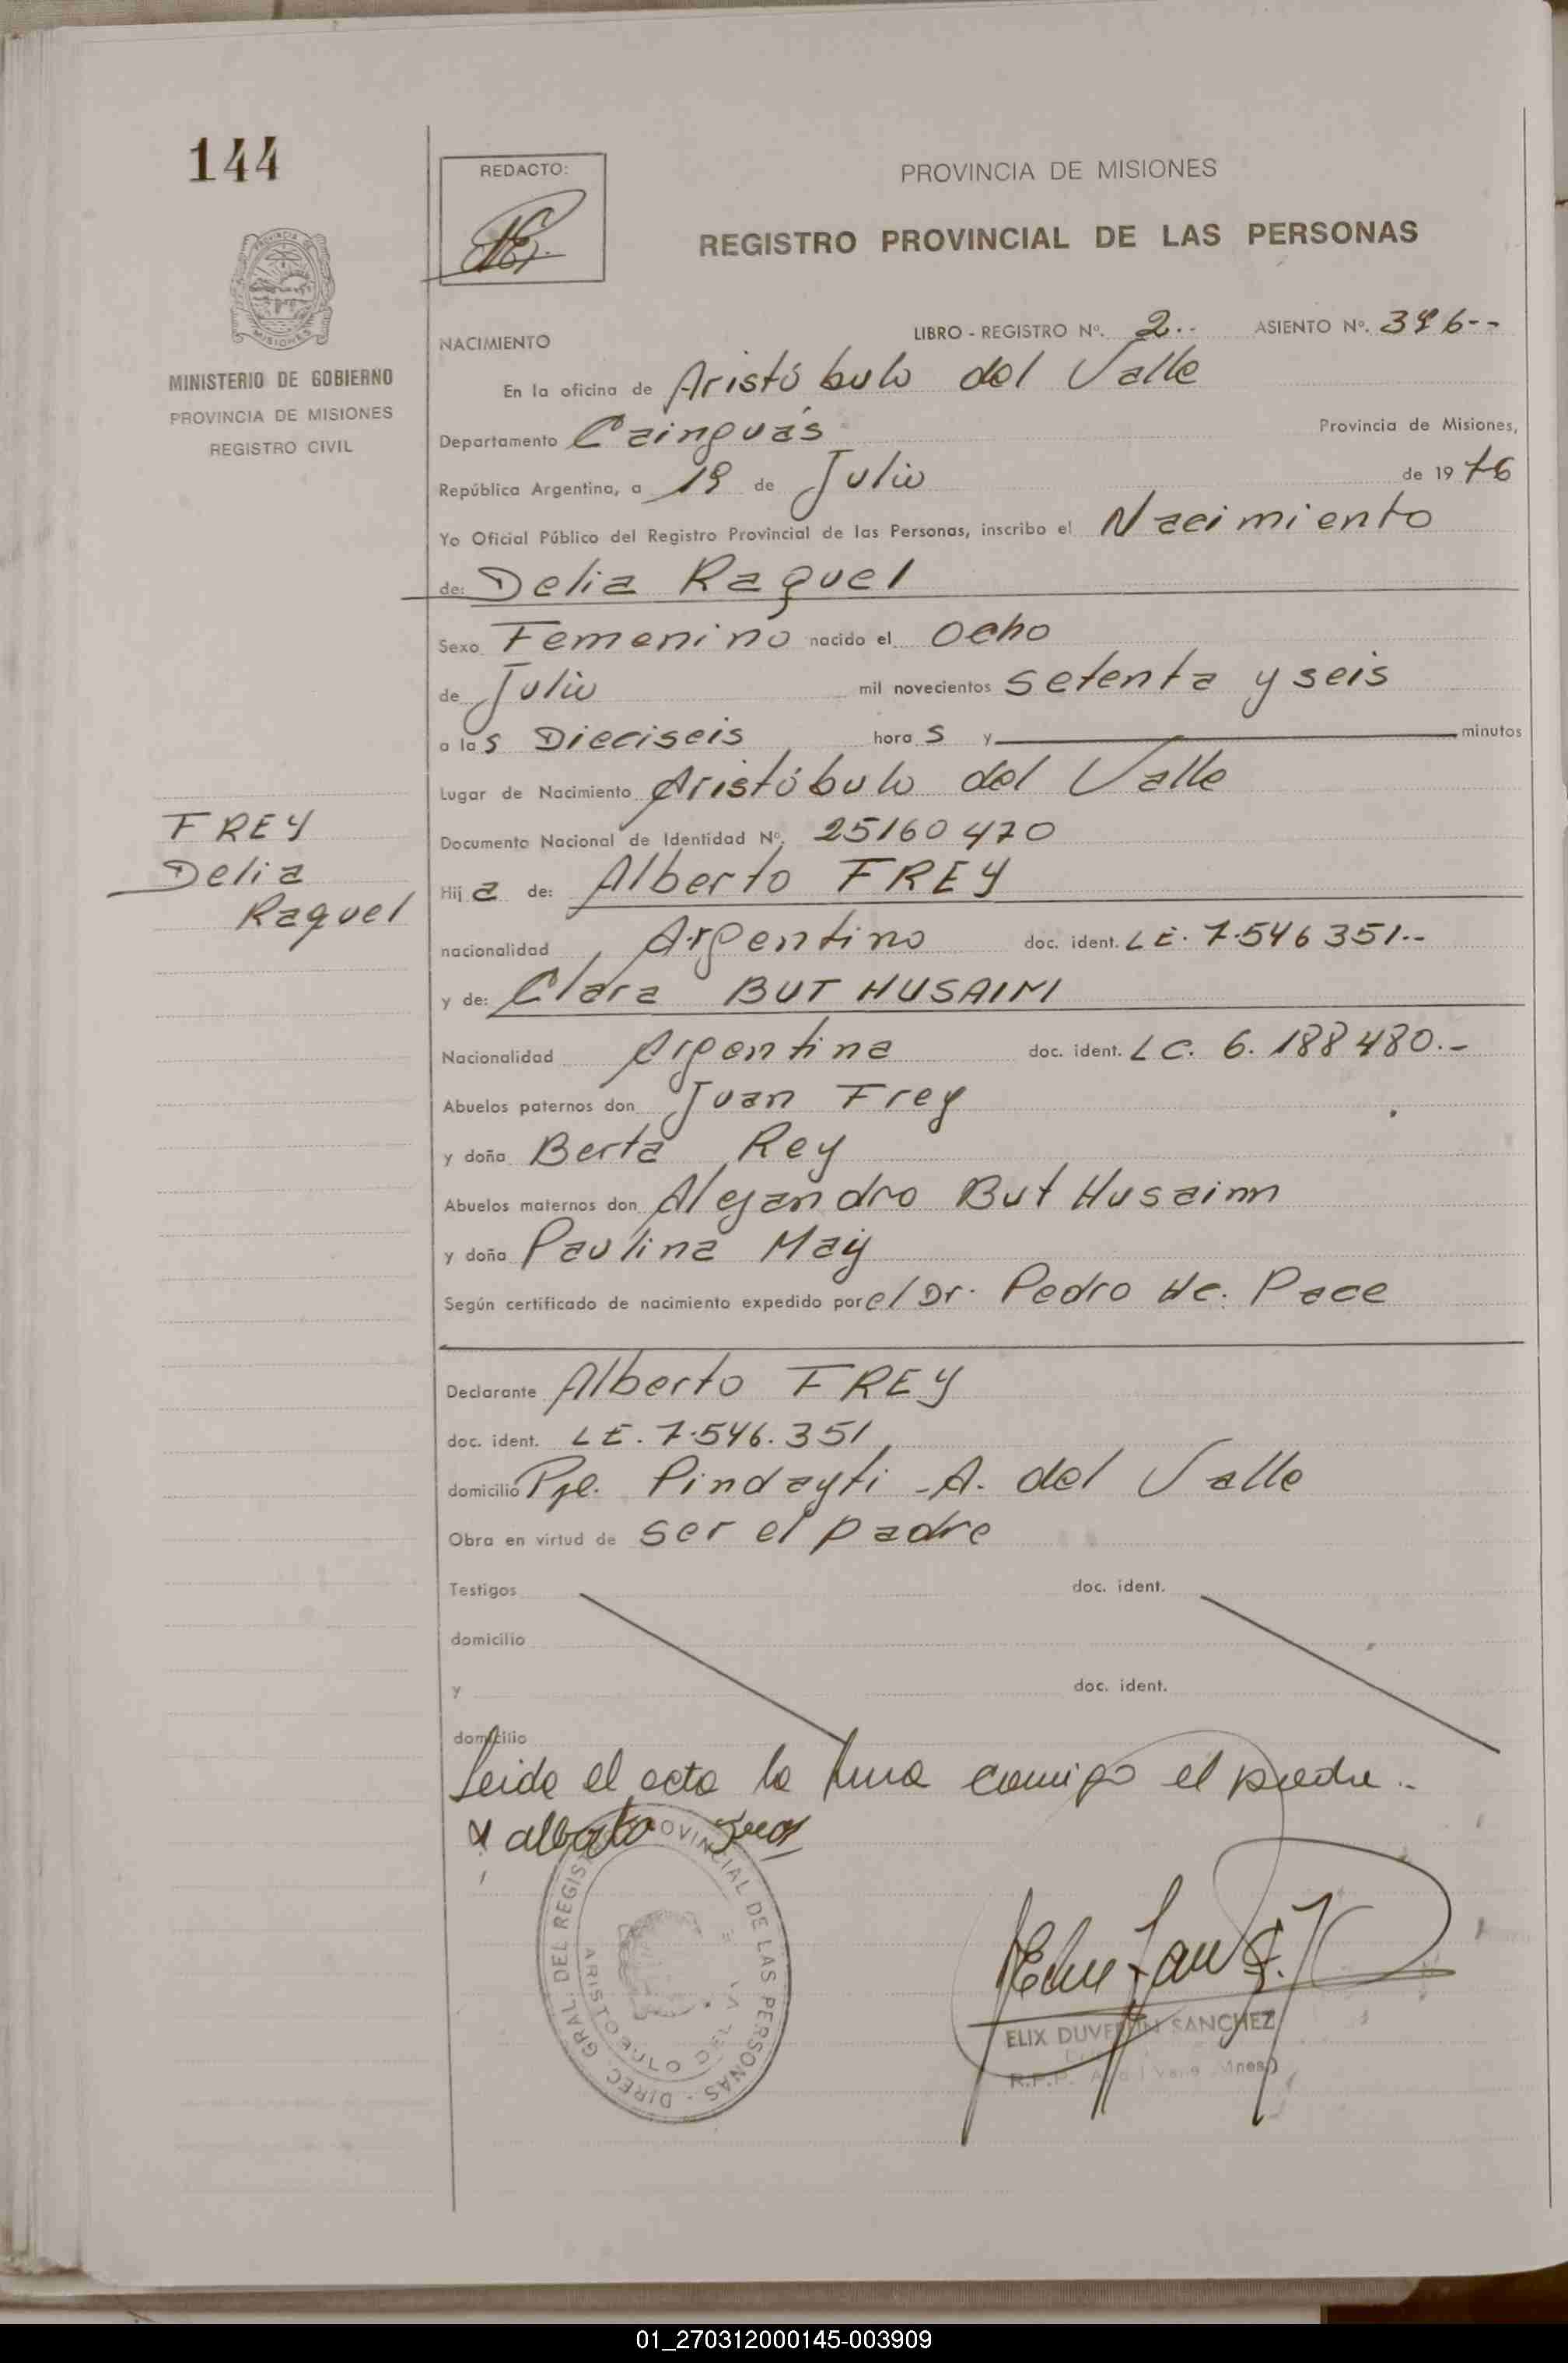 144
REDACTO:
PROVINCIA DE MISIONES
REGISTRO PROVINCIAL DE LAS PERSONAS
MISIONES
MINISTERIO DE GOBIERNO
PROVINCIA DE MISIONES
REGISTRO CIVIL
NACIMIENTO LIBRO - REGISTRO Nº. 2.. ASIENTO Nº.
En la oficina de Aristóbulo del Valle
Departamento Cainguás Provincia de Misiones,
República Argentina, a 19 de Julio de 1976
Yo Oficial Público del Registro Provincial de las Personas, inscribo el Nacimiento
de: Delia Raquel
Sexo Femenino nacido el Ocho
de Julio mil novecientos setenta y seis
a las Dieciseis horas y minutos
Lugar de Nacimiento Aristóbulo del Valle
Documento Nacional de Identidad Nº. 25160470
FREY
Delia
Raquel
Hija de: Alberto FREY
nacionalidad Argentino doc. ident. LE. 7.546351.-
y de: Clara BUT HUSAIM
Nacionalidad Argentina doc. ident. LC. 6.188480.-
Abuelos paternos don Juan Frey
y doña Berta Rey
Abuelos maternos don Alejandro But Husaim
y doña Paulina May
Según certificado de nacimiento expedido por el Dr. Pedro Hc. Pace
Declarante Alberto FREY
doc. ident. LE. 7.546.351
domicilio Pje. Pindayti - A. del Valle
Obra en virtud de ser el padre
Testigos doc. ident.
domicilio
y doc. ident.
domicilio
Leida el acta la firma conmigo el padre.-
DIREC. GRAL. DEL REGISTRO PROVINCIAL DE LAS PERSONAS -
ARISTOBULO DEL VALLE
ELIX DUVERNI SANCHEZ
R.P.P.
01_270312000145-003909